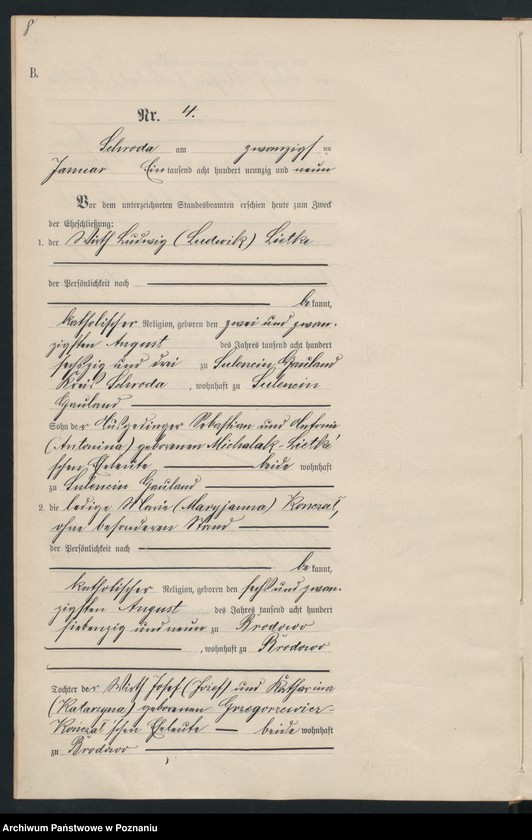 8
B.
Nr. 4.
Schroda am zwanzigs ten
Januar Ein tausend acht hundert neunzig und neun
Vor dem unterzeichneten Standesbeamten erschien heute zum Zweck
der Eheschließung:
1. der Wirth Ludwig (Ludwik) Lietke
der Persönlichkeit nach
be kannt,
katholischer Religion, geboren den zwei und zwan-
zigsten August des Jahres tausend acht hundert
sechszig und drei zu Sulencin Hauland
Kreis Schroda, wohnhaft zu Sulencin
Hauland
Sohn der Sebastian und Antonie
(Antonina) geborenen Michalak-Lietke'
schen Eheleute beide wohnhaft
zu Sulencin Hauland
2. die ledige Marie (Maryjanna) Konczal,
ohne besonderen Stand
der Persönlichkeit nach
be kannt,
katholischer Religion, geboren den sechs und zwan-
zigsten August des Jahres tausend acht hundert
siebenzig und neun zu Brodowo
, wohnhaft zu Brodowo
Tochter der Wirth Josef (Józef) und Katharina
(Katarzyna) geborenen Grzegorzewicz-
Kończal'schen Eheleute beide wohnhaft
zu Brodowo
Archiwum Państwowe w Poznaniu